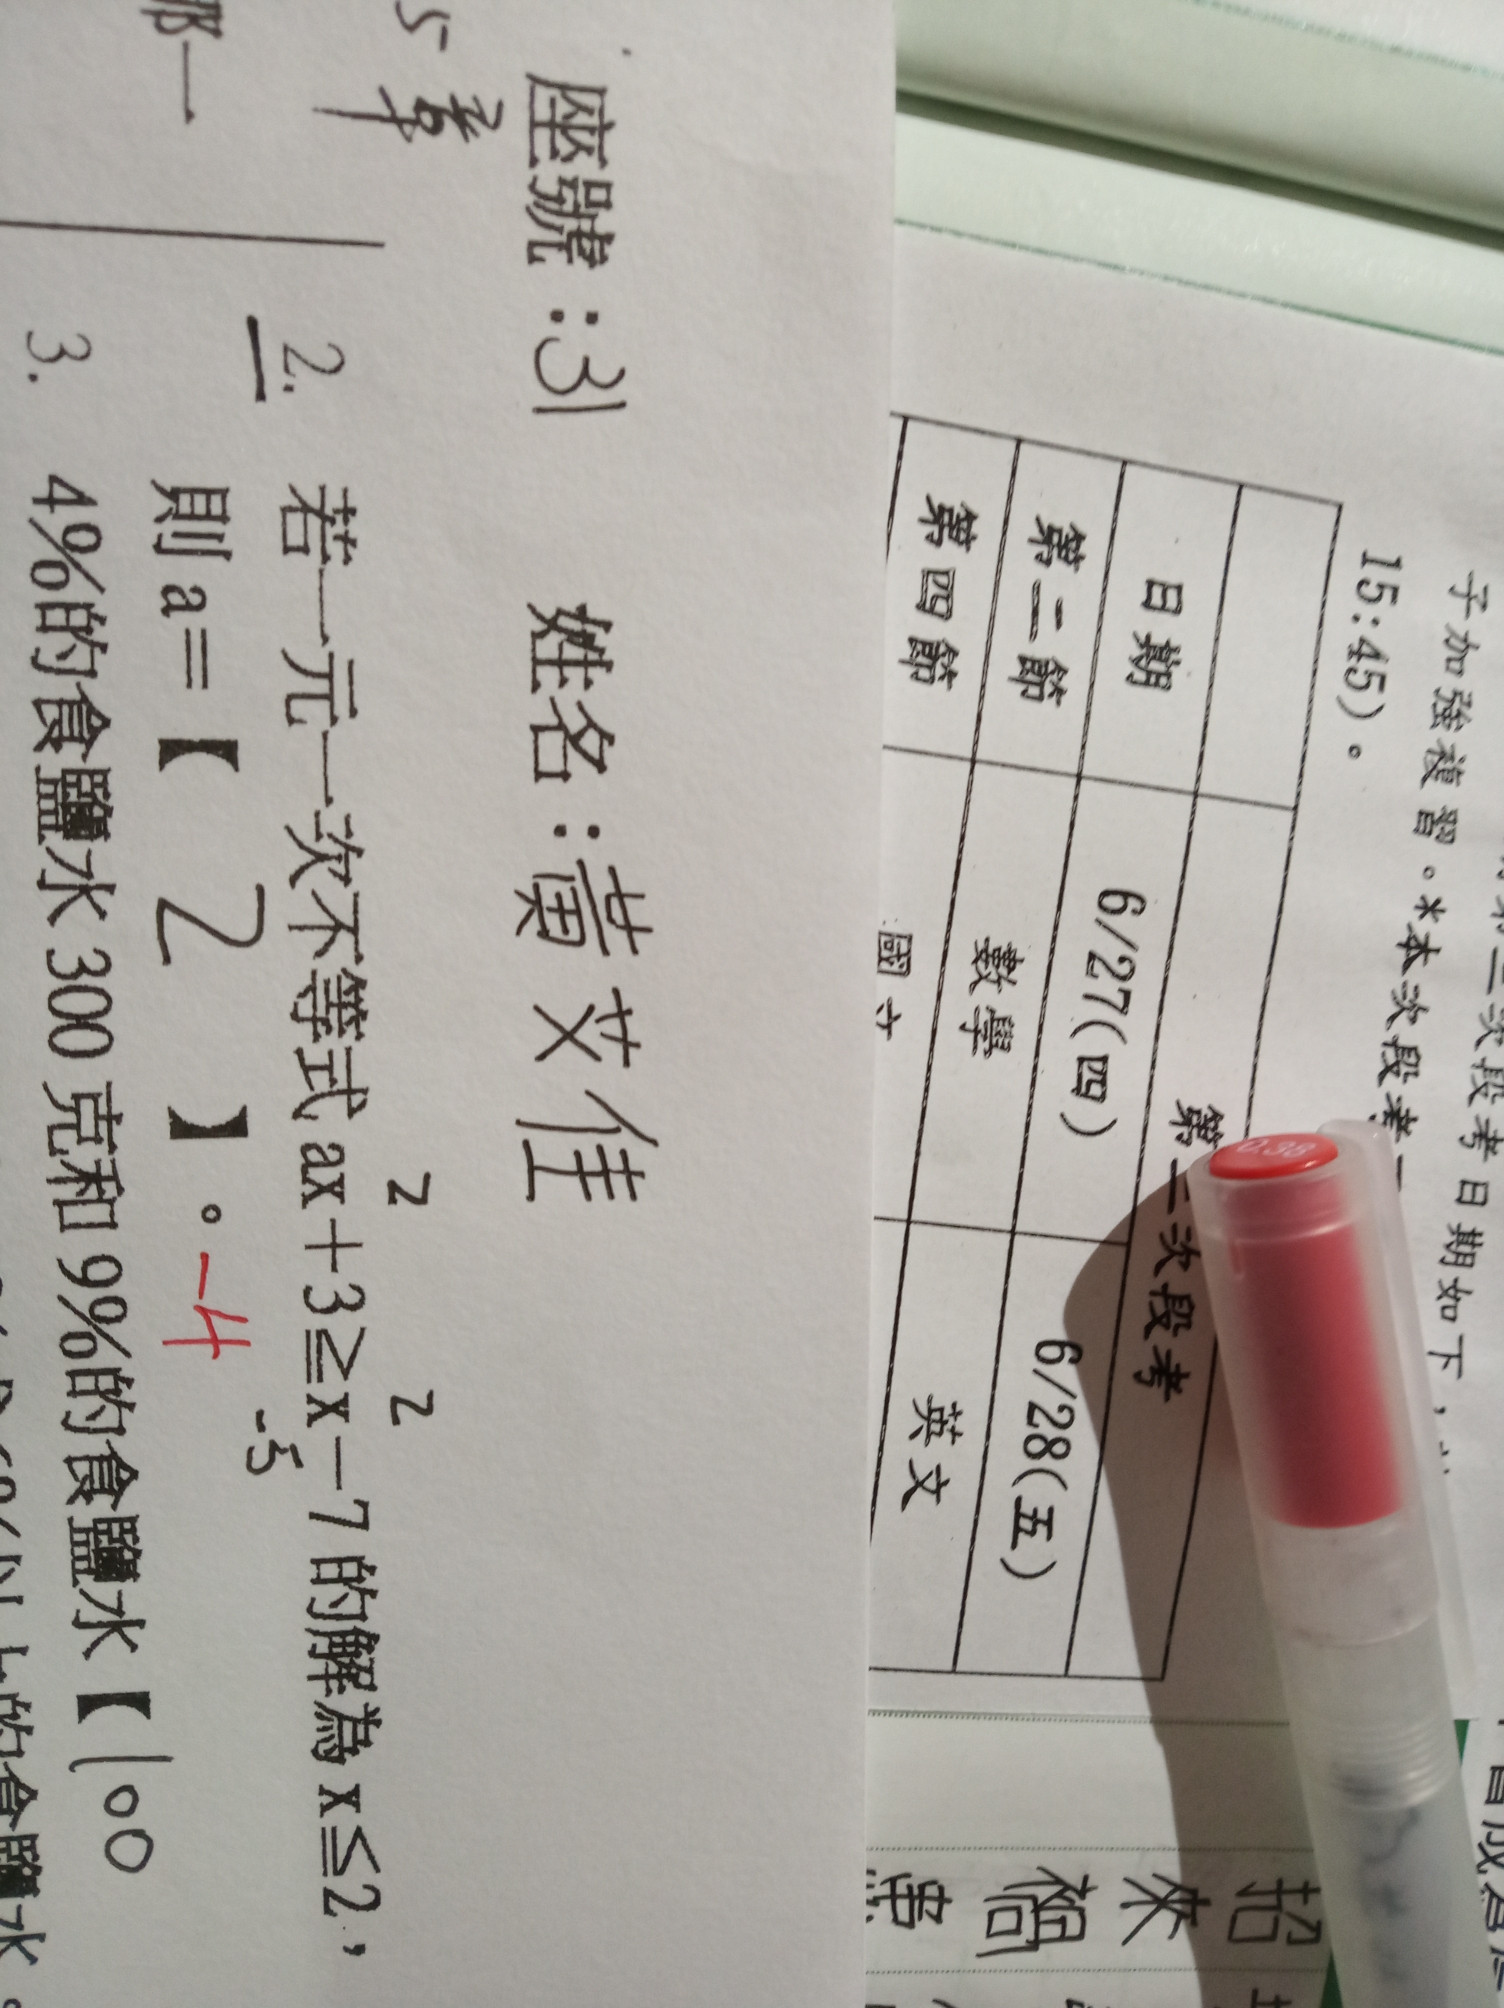 座號:31 姓名:黃艾佳
2 2
2. 若一元一次不等式 ax+3≧x-7 的解為 x≦2,
-5
則 a=【 2 】。-4
3. 4%的食鹽水 300 克和 9%的食鹽水【100
那一
次段考日期如下,
子加強複習。*本次段考
15:45)。
第二次段考
日期 6/27(四) 6/28(五)
第二節 數學 英文
第四節 國文
招
來
禍